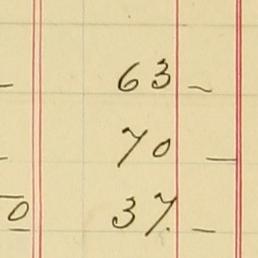 63 –
70 –
0 37. –